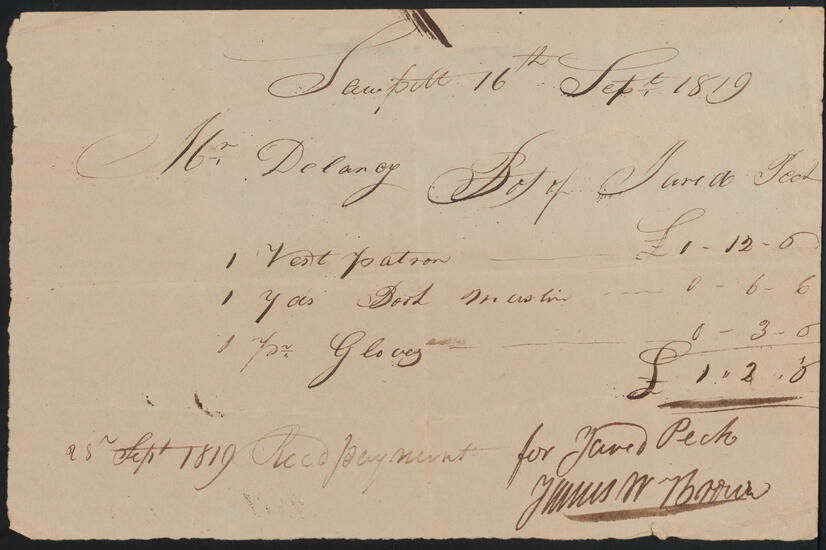 Sawpitt 16th Sept. 1819
Mr. Delancy Bot of Jared Peck
1 Vest patron £ 1-12-0
1 yds Book muslin 0-6-6
1 pr. Gloves 0-3-0
£ 1"2"
25th Sept 1819 Recd payment for Jared Peck
James W Brown